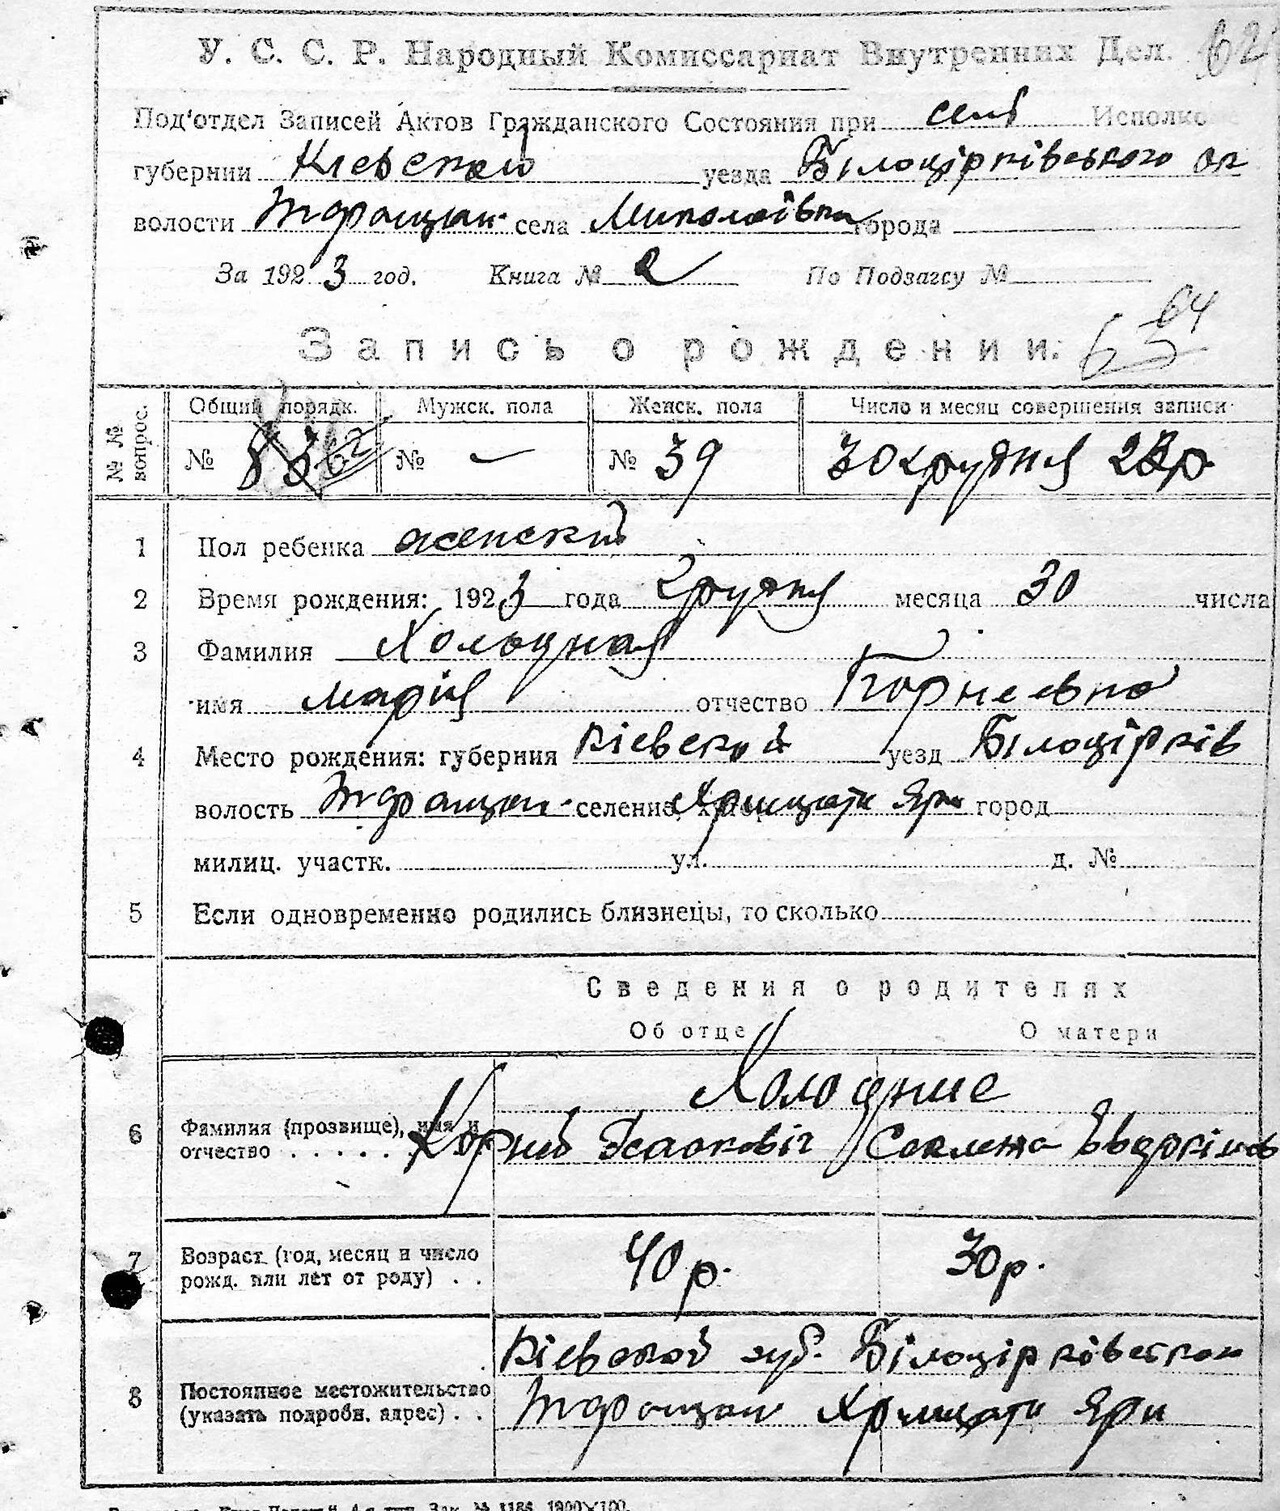 У. С. С. Р. Народный Комиссариат Внутренних Дел. 62
Под'отдел Записей Актов Гражданского Состояния при сельс Исполко
губернии Кіевской уезда Білоцірківського ок
волости села Миколаївка города
За 1923 год. Книга № 2 По Подзагсу №
64
63
Запись о рождении.
№№ вопрос. Общий порядк. Мужск. пола Женск. пола Число и месяц совершения записи
№ 83 62 № — № 39 30 грудня 23 р.
1 Пол ребенка женский
2 Время рождения: 1923 года грудня месяца 30 числа
3 Фамилия Холодная
имя Марія отчество Корнеевна
4 Место рождения: губерния Кіевской уезд Білоцірків
волость селение, Хрищати Яри город
милиц. участк. ул. д. №
5 Если одновременно родились близнецы, то сколько
Сведения о родителях
Об отце О матери
Холодние
6 Фамилия (прозвище), имя и
отчество . . . . . Корній Ісакович
7 Возраст (год, месяц и число
рожд. или лет от роду) . . 40 р. 30 р.
Кіевской губ.
8 Постоянное местожительство
(указать подробн. адрес) . . Хрищати Яри
Зак. № 1186 1900×100.